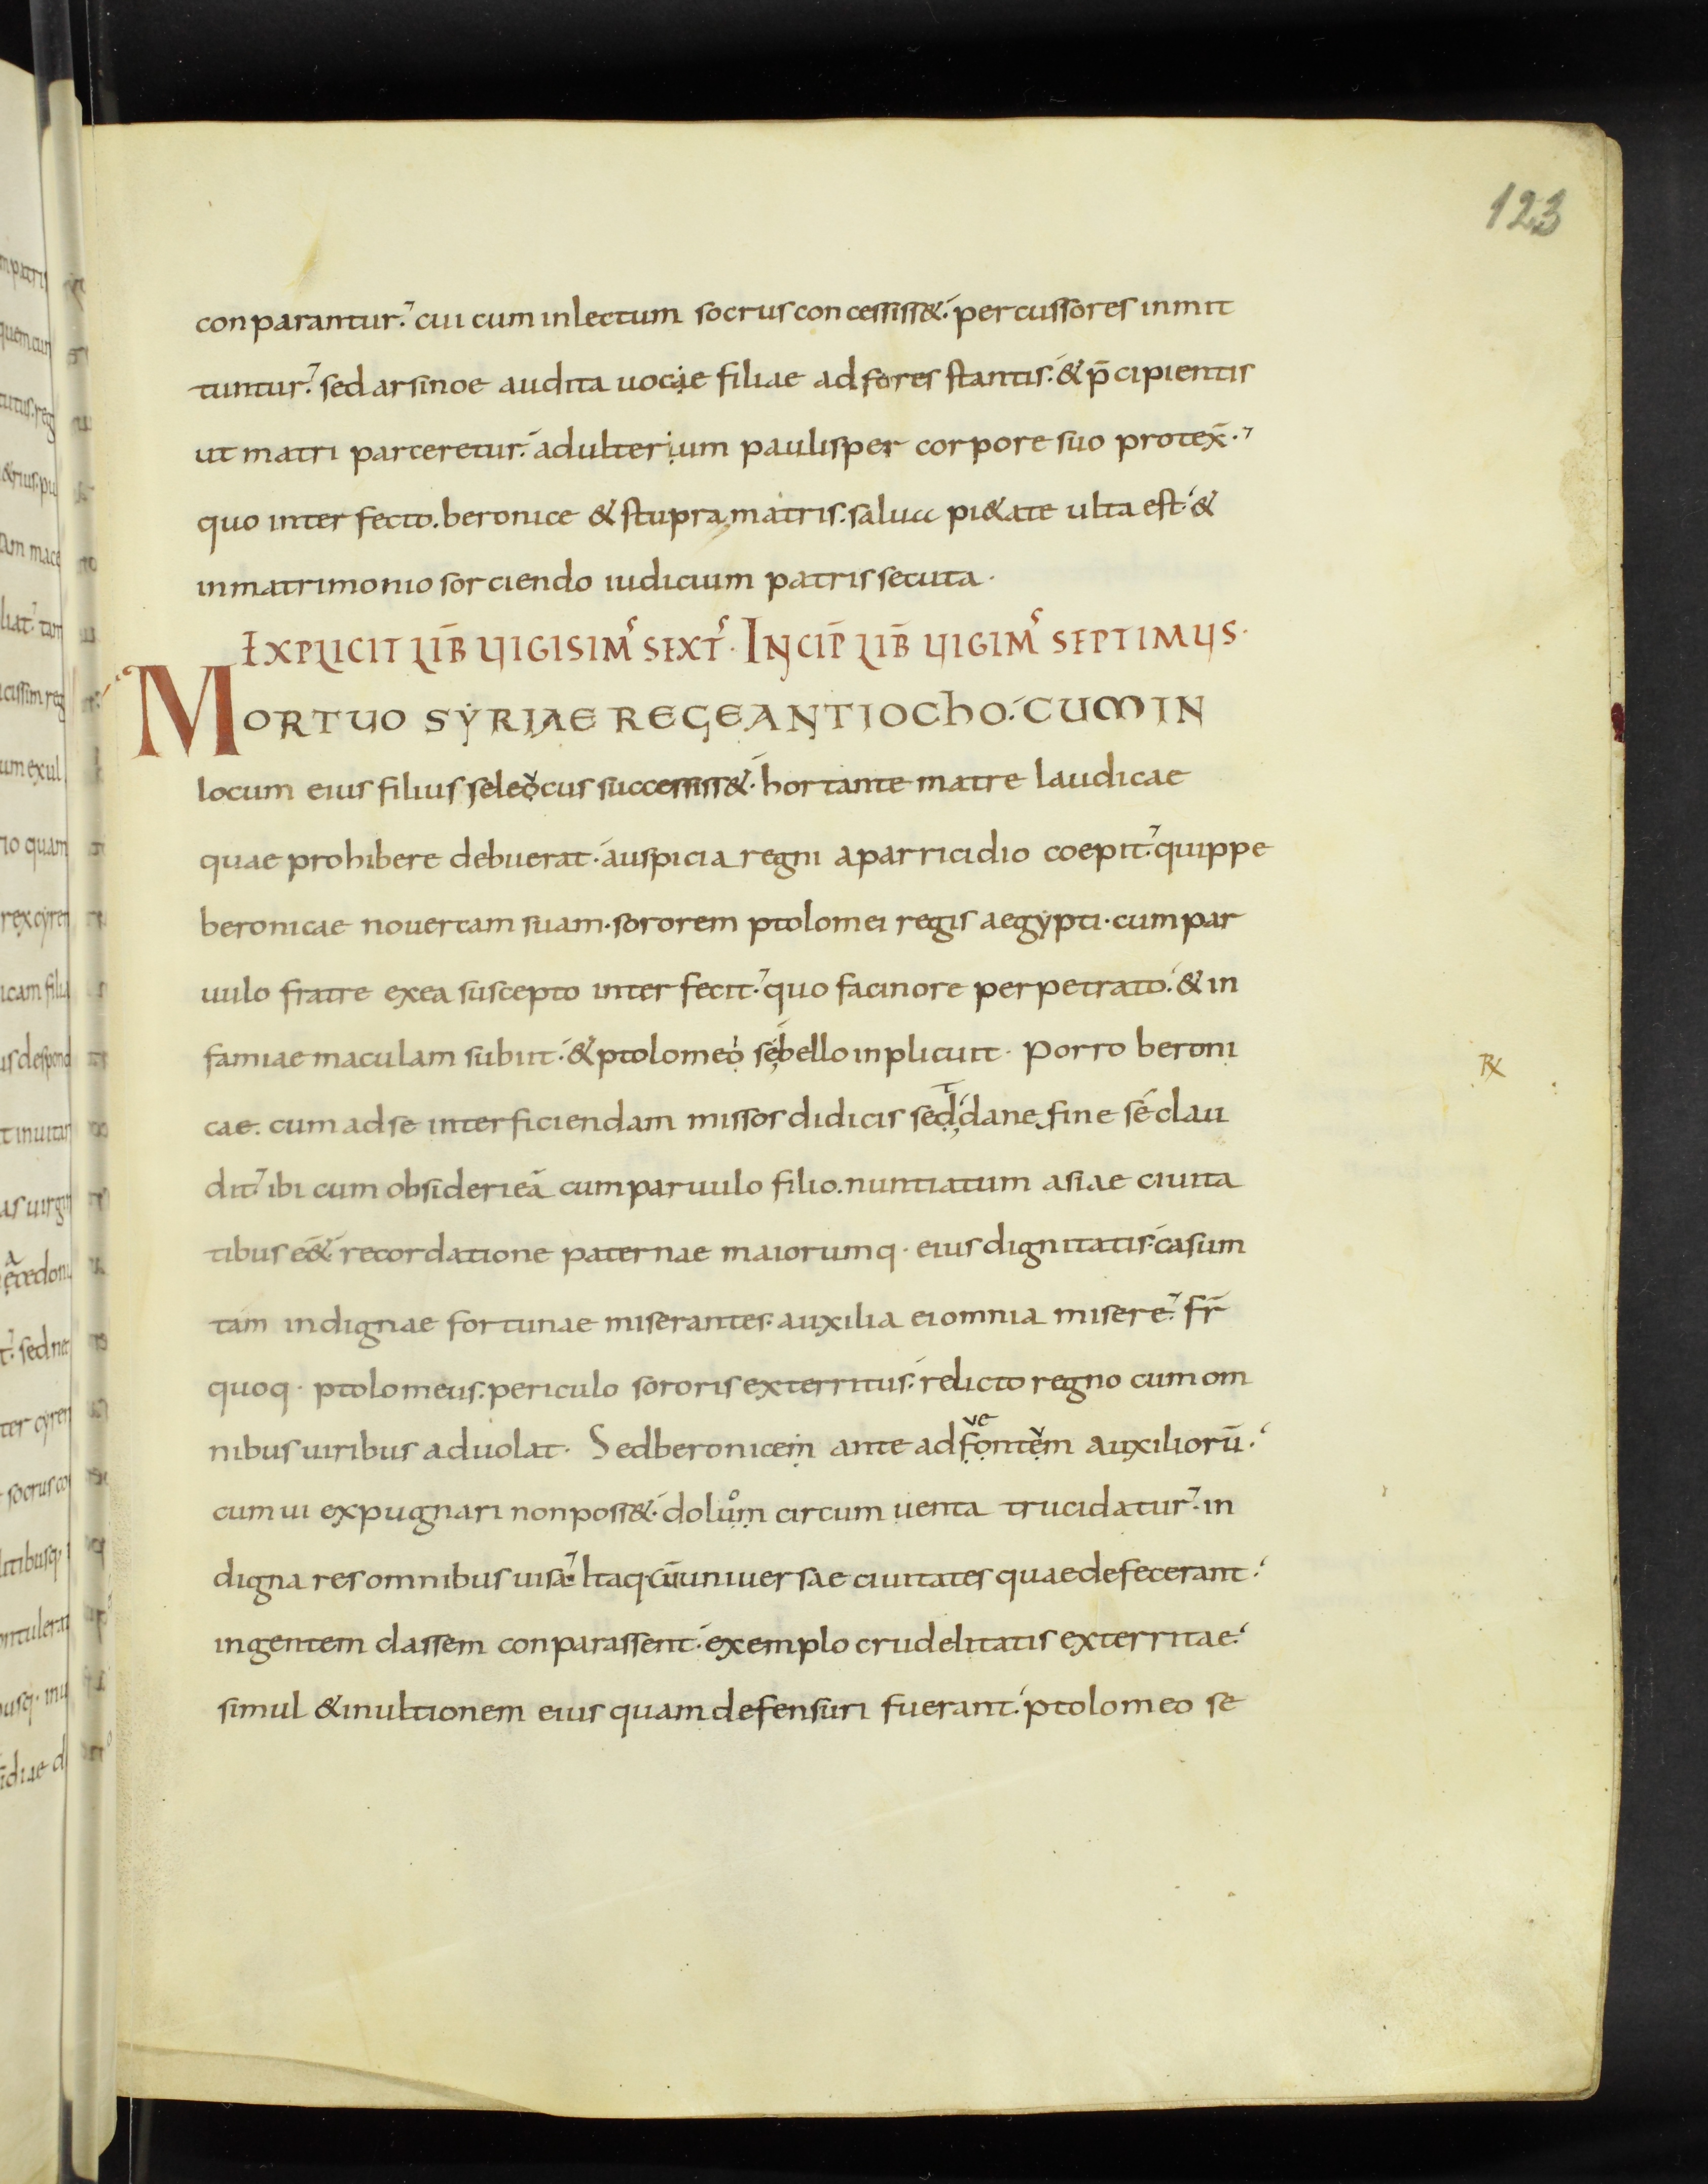 123
conparantur. cui cum inlectum socrus concessiss&. percussores inmit
tuntur. sed arsinoe audita uociae filiae ad fores stantis. & p̄cipientis
ut matri parceretur. adulterium paulisper corpore suo protex̄.
quo interfecto. beronice & stupra matris. salua pi&ate ulta est. &
inmatrimonio sorciendo iudicium patris secuta.
EXPLICIT LIB̄ UIGISIMꝰ SEXTꝰ. INCIP̄ LIB̄ UIGIMꝰ SEPTIMUS.
MORTUO SYRIAE REGE ANTIOCHO. CUM IN
locum eius filius seleocus successiss&. hortante matre laudicae
quae prohibere debuerat. auspicia regni a parricidio coepit. quippe
beronicae nouercam suam. sororem ptolomei regis aegypti. cum par
uulo fratre ex ea suscepto interfecit. quo facinore perpetrato. & in
famiae maculam subiit. & ptolomeo se bello inplicuit. Porro beroni
cae. cum ad se interficiendam missos didicissed dane fine se clau
dit. ibi cum obsideri eā cum paruulo filio. nuntiatum asiae ciuita
tibus e&. recordatione paternae maiorumq. eius dignitatis. casum
tam indignae fortunae miserantes. auxilia ei omnia misere. fr̄
quoq. ptolomeus. periculo sororis exterritus. relicto regno cum om
nibus uiribus aduolat. Sed beronicem ante adfontem auxiliorū.
cum ui expugnari non poss&. dolum circumuenta trucidatur. in
digna res omnibus uisa. Itaq. cū uniuersae ciuitates quae defecerant.
ingentem classem conparassent. exemplo crudelitatis exterritae.
simul & inultionem eius quam defensuri fuerant. ptolomeo se